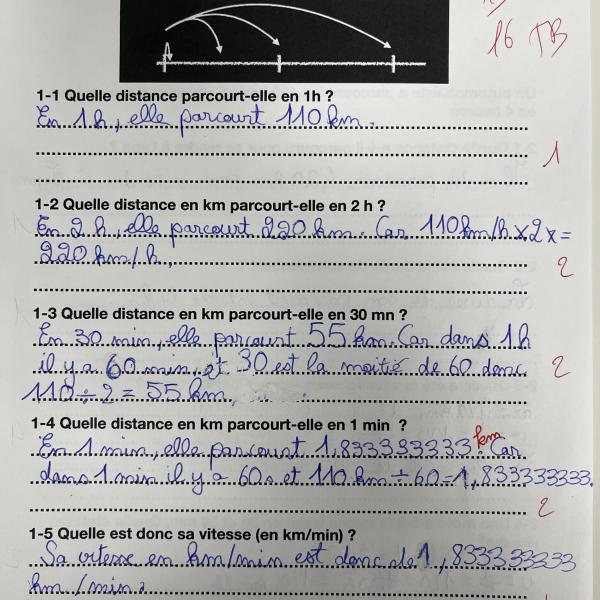 16 TB
1-1 Quelle distance parcourt-elle en 1h ?
En 1h, elle parcourt 110 km.
1
1-2 Quelle distance en km parcourt-elle en 2 h ?
En 2h, elle parcourt 220 km. Car 110km/h x2 x =
220 km/h.
2
1-3 Quelle distance en km parcourt-elle en 30 mn ?
En 30 min, elle parcourt 55 km. Car dans 1h
il y a 60 min, et 30 est la moitié de 60 donc
110 ÷ 2 = 55 km.
2
1-4 Quelle distance en km parcourt-elle en 1 min ?
En 1 min, elle parcourt 1,833333333 km. Car
dans 1 min il y a 60s et 110 km ÷ 60 = 1,833333333.
2
1-5 Quelle est donc sa vitesse (en km/min) ?
Sa vitesse en km/min est donc de 1,833333333
km/min.